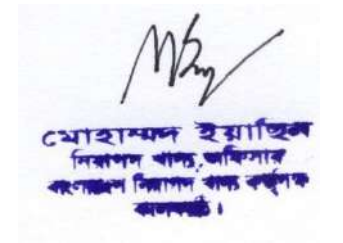 মোহাম্মদ ইয়াছিন
নিরাপদ খাদ্য অফিসার
বাংলাদেশ নিরাপদ খাদ্য কর্তৃপক্ষ